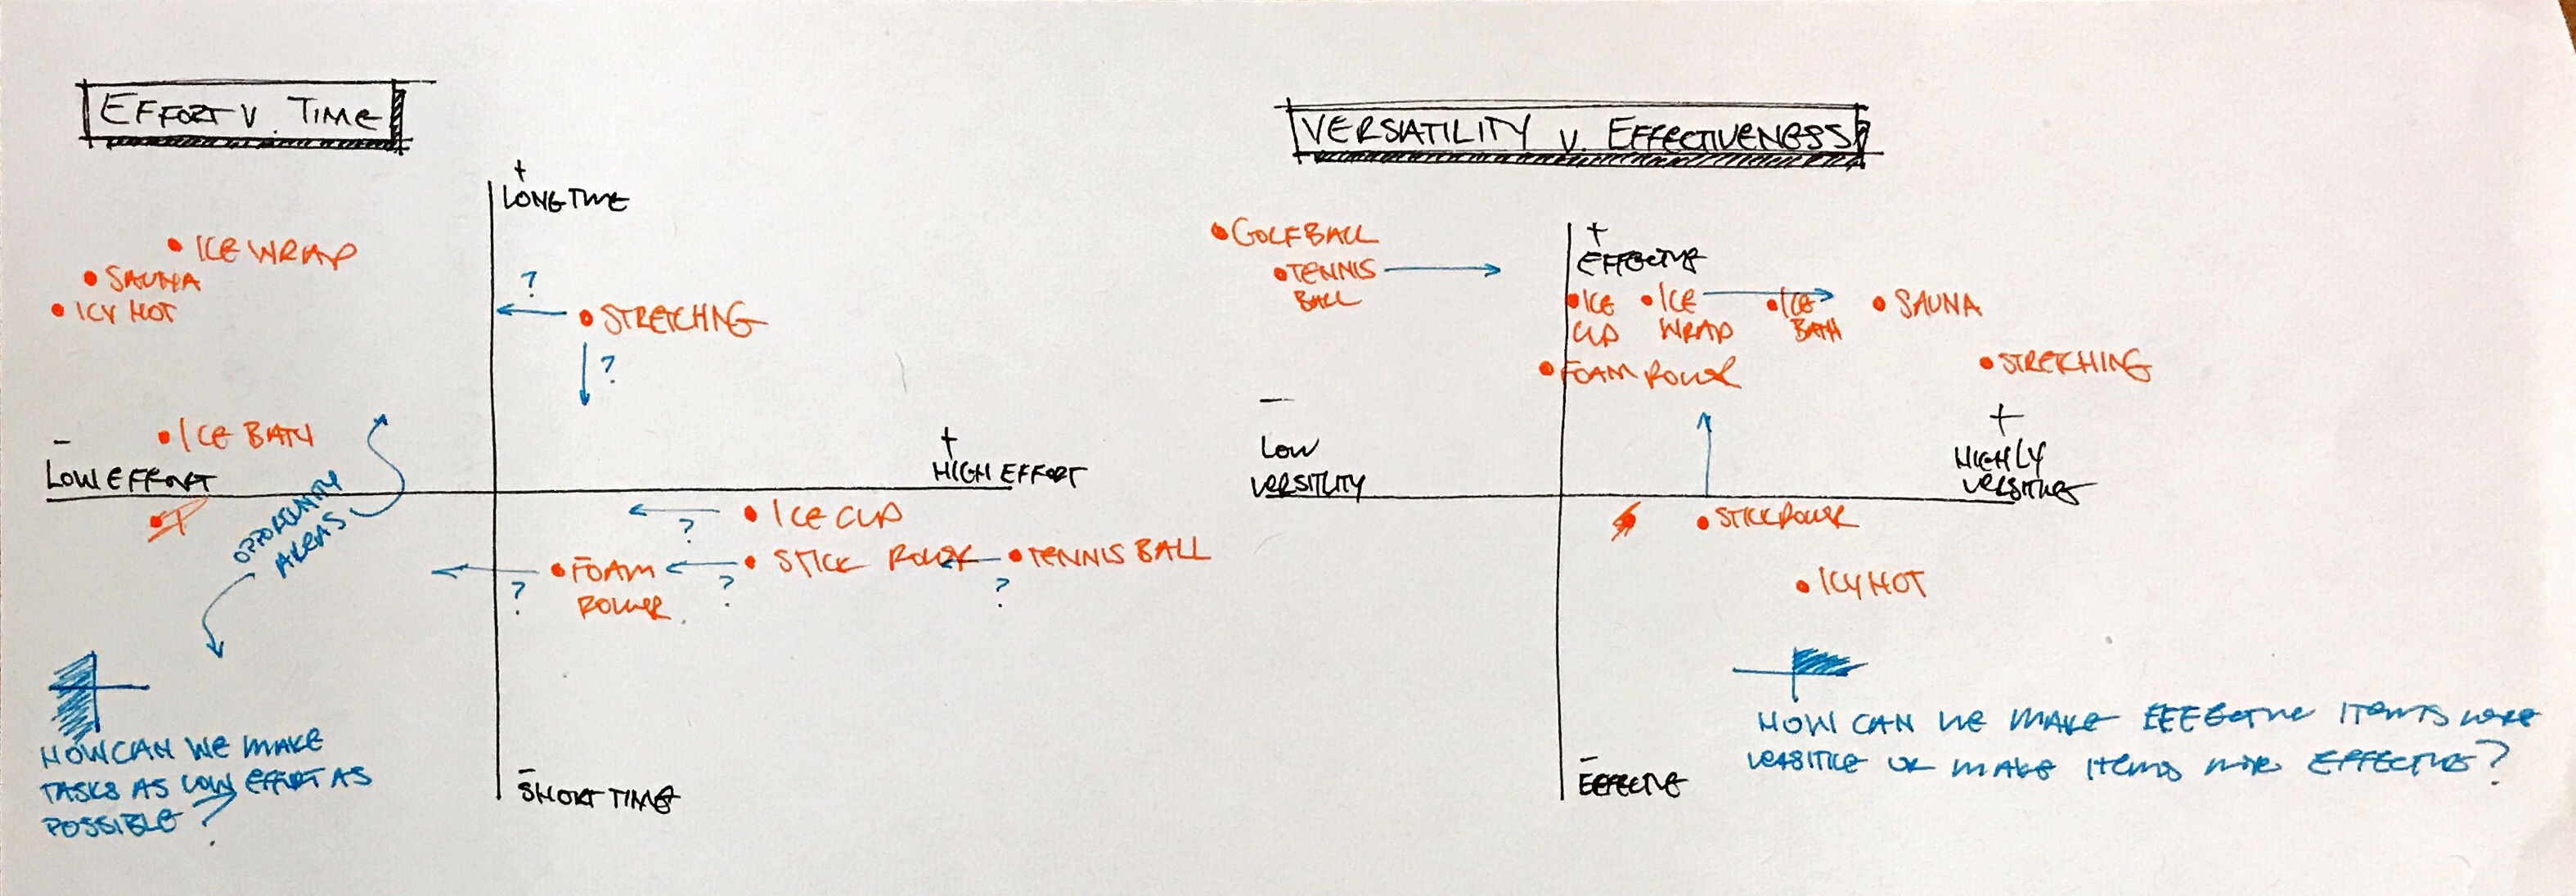 EFFORT V. TIME
+
LONG TIME
ICE WRAP
SAUNA
ICY HOT
?
STRETCHING
?
ICE BATH
-
LOW EFFORT
+
HIGH EFFORT
OPPORTUNITY
AREAS
ICE CUP
?
FOAM
ROLLER
STICK ROLLER
TENNIS BALL
?
?
?
HOW CAN WE MAKE
TASKS AS LOW EFFORT AS
POSSIBLE?
-
SHORT TIME
VERSIATILITY V. EFFECTIVENESS
GOLF BALL
TENNIS
BALL
+
EFFECTIVE
ICE
CUP
ICE
WRAP
ICE
BATH
SAUNA
FOAM ROLLER
STRETCHING
-
LOW
VERSITLITY
+
HIGHLY
STICK ROLLER
ICY HOT
HOW CAN WE MAKE EFFECTIVE ITEMS MORE
VERSITLE OR MAKE ITEMS MORE EFFECTIVE?
-
EFFECTIVE